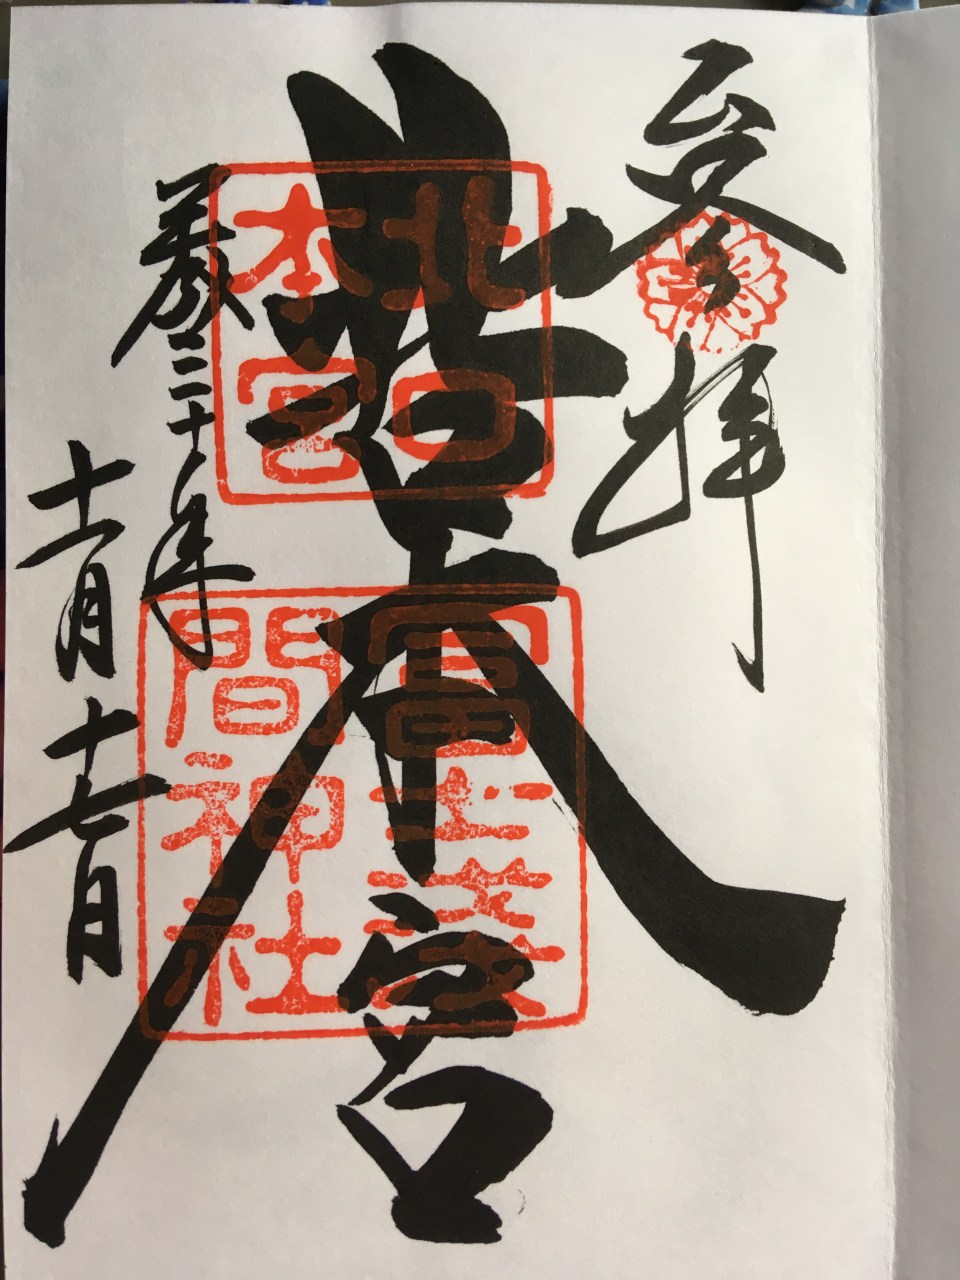 奉拝
北口本宮
平成三十年
十一月十七日
北口
本宮
冨士淺
間神社